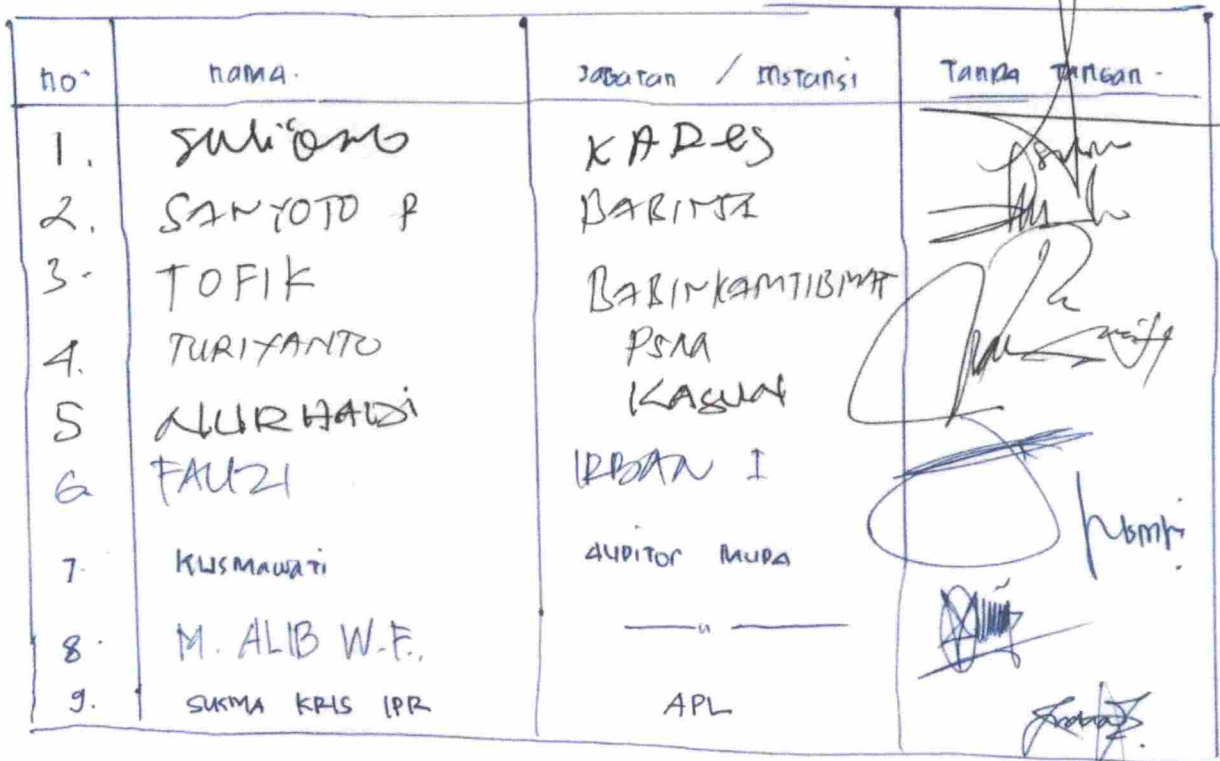 no. nama. Jabatan / Instansi Tanda Tangan.
1. KADES
2. SANYOTO P BABINSA
3. TOFIK BABINKAMTIBMAT
4. TURIYANTO PSM
5 NURHADI KASUN
6 FAUZI IRBAN I
7. KUSMAWATI AUDITOR MUDA
8. M. ALIB W.F. — " —
9. SUKMA KRIS IPR APL